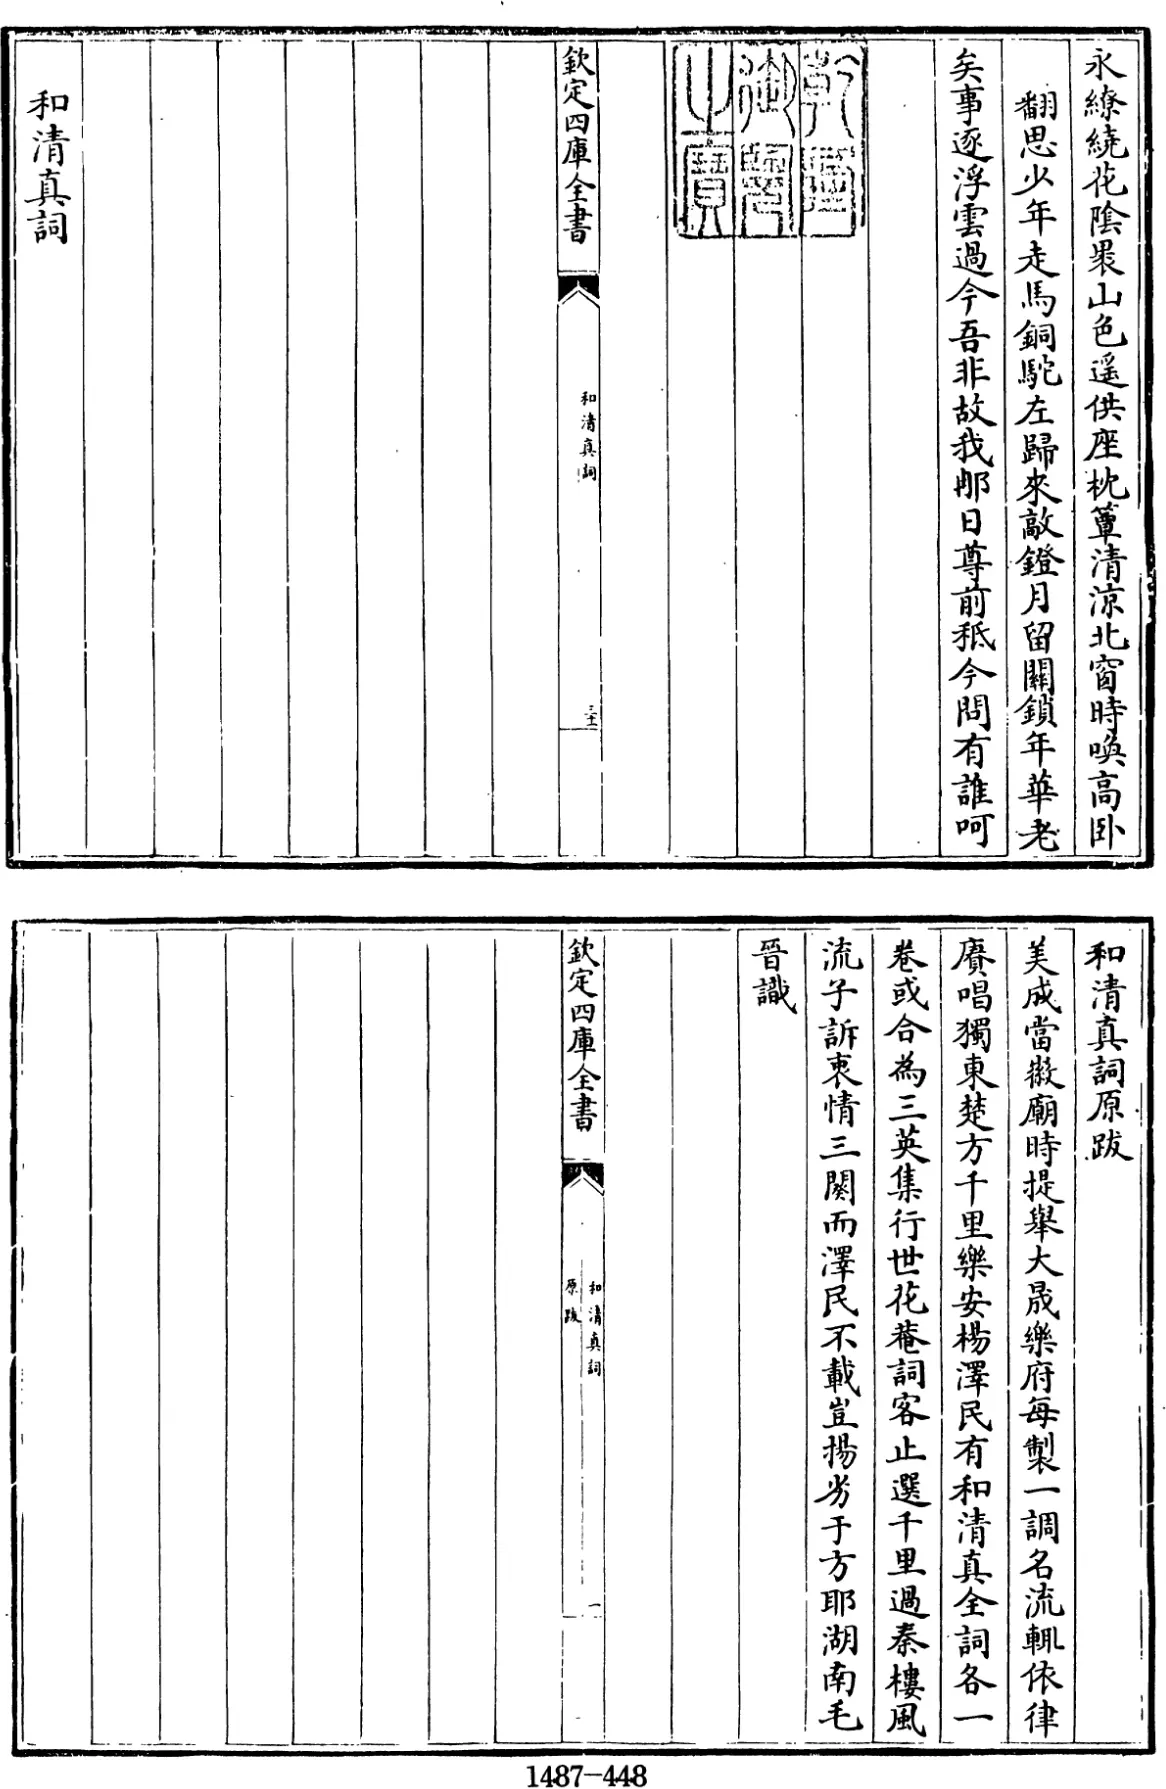 永繚繞花陰褁山色遥供座枕簟清涼北窗時喚高卧
翻思少年走馬銅駝左歸來敲鐙月留關鎖年華老
矣事逐浮雲過今吾非故我那日尊前秪今問有誰呵
乾隆御覽之寶
欽定四庫全書
和清真詞
三十
和清真詞
和清真詞原跋
美成當徽廟時提舉大晟樂府每製一調名流輒依律
賡唱獨東楚方千里樂安楊澤民有和清真全詞各一
卷或合為三英集行世花菴詞客止選千里過秦樓風
流子訴衷情三闋而澤民不載豈揚劣于方耶湖南毛
晉識
欽定四庫全書
和清真詞
原跋
一
1487-448